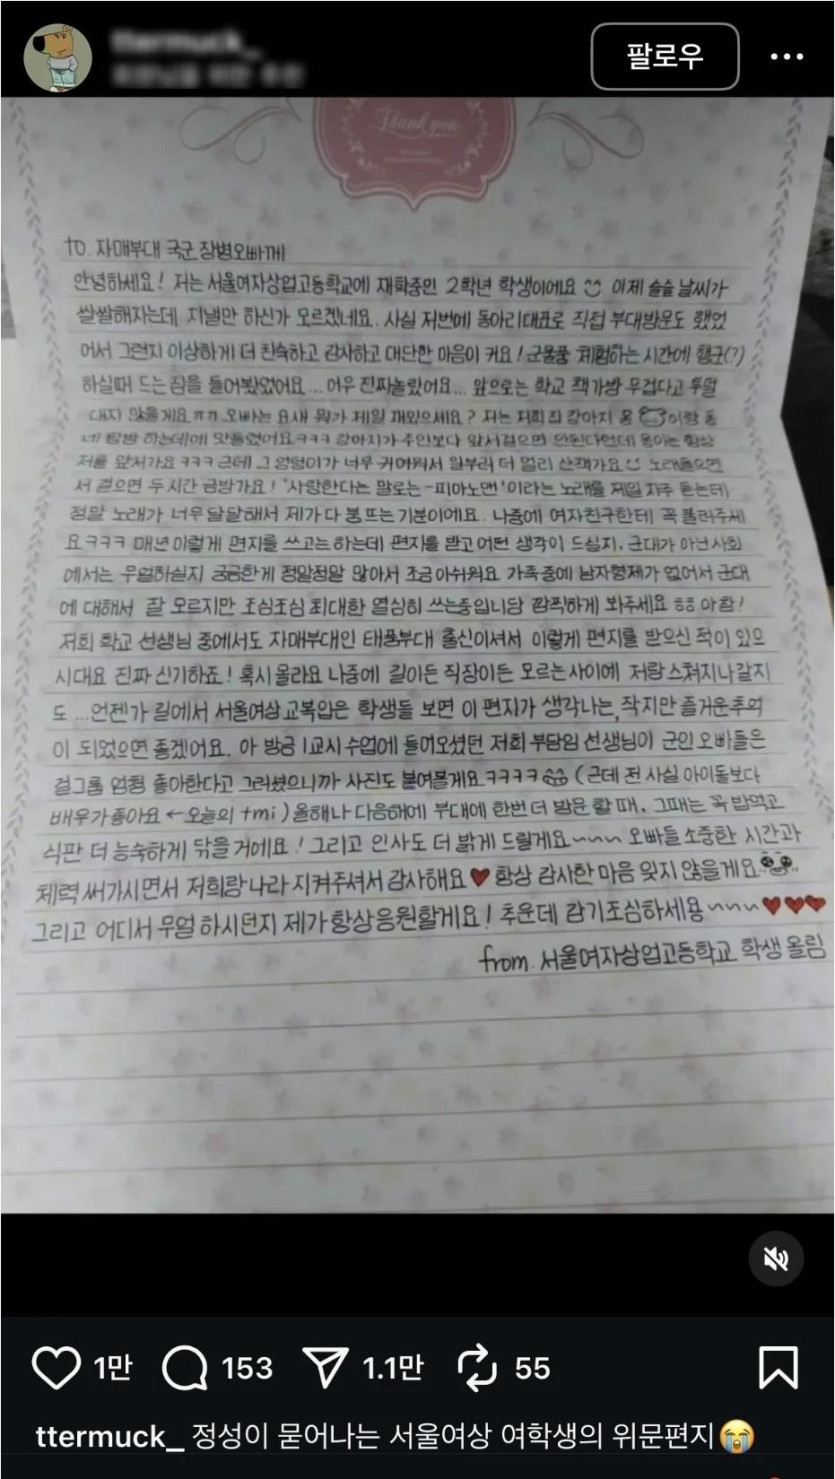 팔로우
Thank you
to. 자매부대 국군 장병오빠께
안녕하세요! 저는 서울여자상업고등학교에 재학중인 2학년 학생이에요 이제 슬슬 날씨가
쌀쌀해지는데 지낼만 하신가 모르겠네요. 사실 저번에 동아리대표로 직접 부대방문도 했었
어서 그런지 이상하게 더 친숙하고 감사하고 대단한 마음이 커요! 군용품 체험하는 시간에 행군(?)
하실때 드는 짐을 들어봤었어요... 어우 진짜놀랐어요... 앞으로는 학교 책가방 무겁다고 투덜
대지 않을게요ㅠㅠ 오빠는 요새 뭐가 제일 재밌으세요? 저는 저희집 강아지 몽 이랑 동
네 탐방 하는데에 맛들렸어요ㅋㅋㅋ 강아지가 주인보다 앞서걸으면 안된다던데 몽이는 항상
저를 앞서가요ㅋㅋㅋ 근데 그 엉덩이가 너무 귀여워서 일부러 더 멀리 산책가요 노래들으면
서 걸으면 두시간 금방가요! '사랑한다는 말로는-피아노맨'이라는 노래를 제일 자주 듣는데
정말 노래가 너무 달달해서 제가 다 붕 뜨는 기분이에요. 나중에 여자친구한테 꼭 불러주세
요ㅋㅋㅋ 매년 이렇게 편지를 쓰고는하는데 편지를 받고 어떤 생각이 드실지, 군대가 아닌 사회
에서는 무얼하실지 궁금한게 정말정말 많아서 조금 아쉬워요 가족중에 남자형제가 없어서 군대
에 대해서 잘 모르지만 조심조심 최대한 열심히 쓰는중입니당 깜찍하게 봐주세요 ㅎㅎ 아참!
저희 학교 선생님 중에서도 자매부대인 태풍부대 출신이셔서 이렇게 편지를 받으신 적이 있으
시대요 진짜 신기하죠! 혹시 몰라요 나중에 길이든 직장이든 모르는사이에 저랑 스쳐지나갈지
도 ...언젠가 길에서 서울여상 교복입은 학생들 보면 이 편지가 생각나는, 작지만 즐거운추억
이 되었으면 좋겠어요. 아 방금 1교시 수업에 들어오셨던 저희 부담임 선생님이 군인 오빠들은
걸그룹 엄청 좋아한다고 그러셨으니까 사진도 붙여볼게요ㅋㅋㅋㅋ (근데 전 사실 아이돌보다
배우가 좋아요 ← 오늘의 tmi) 올해나 다음해에 부대에 한번 더 방문 할 때, 그때는 꼭 밥먹고
식판 더 능숙하게 닦을 거에요! 그리고 인사도 더 밝게 드릴게요~~~ 오빠들 소중한 시간과
체력 써가시면서 저희랑 나라 지켜주셔서 감사해요♥ 항상 감사한 마음 잊지 않을게요
그리고 어디서 무얼 하시던지 제가 항상응원할게요! 추운데 감기조심하세용~~~♥♥♥
from. 서울여자상업고등학교 학생 올림
1만 153 1.1만 55
ttermuck_ 정성이 묻어나는 서울여상 여학생의 위문편지😭